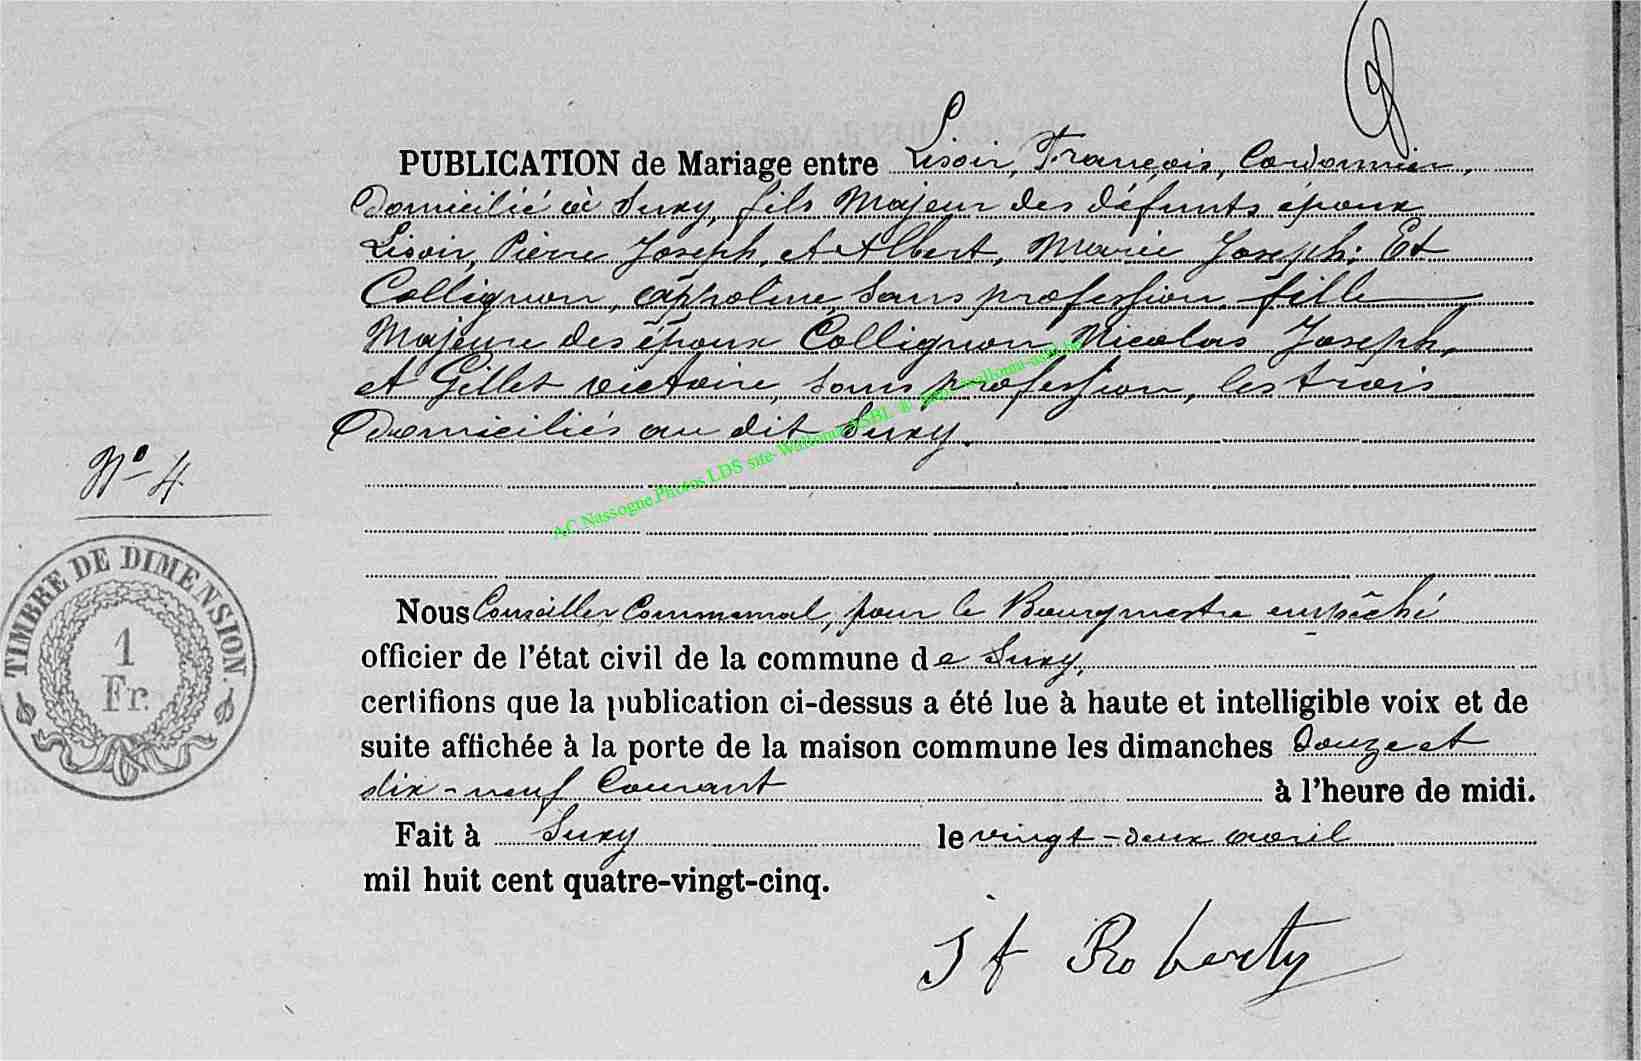 PUBLICATION de Mariage entre Lisoir, François, Cordonnier,
Domicilié à Suxy, fils Majeur des défunts époux
Lisoir, Pierre Joseph, et Albert, Marie Joseph; Et
Collignon, Appoline, Sans profession, fille
Majeure des époux Collignon, Nicolas Joseph,
et Gillet victoire, sans profession, les trois
Domiciliés au dit Suxy.
N° 4
AC Nassogne Photos LDS site-Wallonia ASBL
TIMBRE DE DIMENSION
1
Fr.
Nous Conseiller Communal, pour le Bourgmestre empêché
officier de l'état civil de la commune de Suxy,
certifions que la publication ci-dessus a été lue à haute et intelligible voix et de
suite affichée à la porte de la maison commune les dimanches Douze et
dix-neuf Courant à l'heure de midi.
Fait à Suxy le vingt-deux avril
mil huit cent quatre-vingt-cinq.